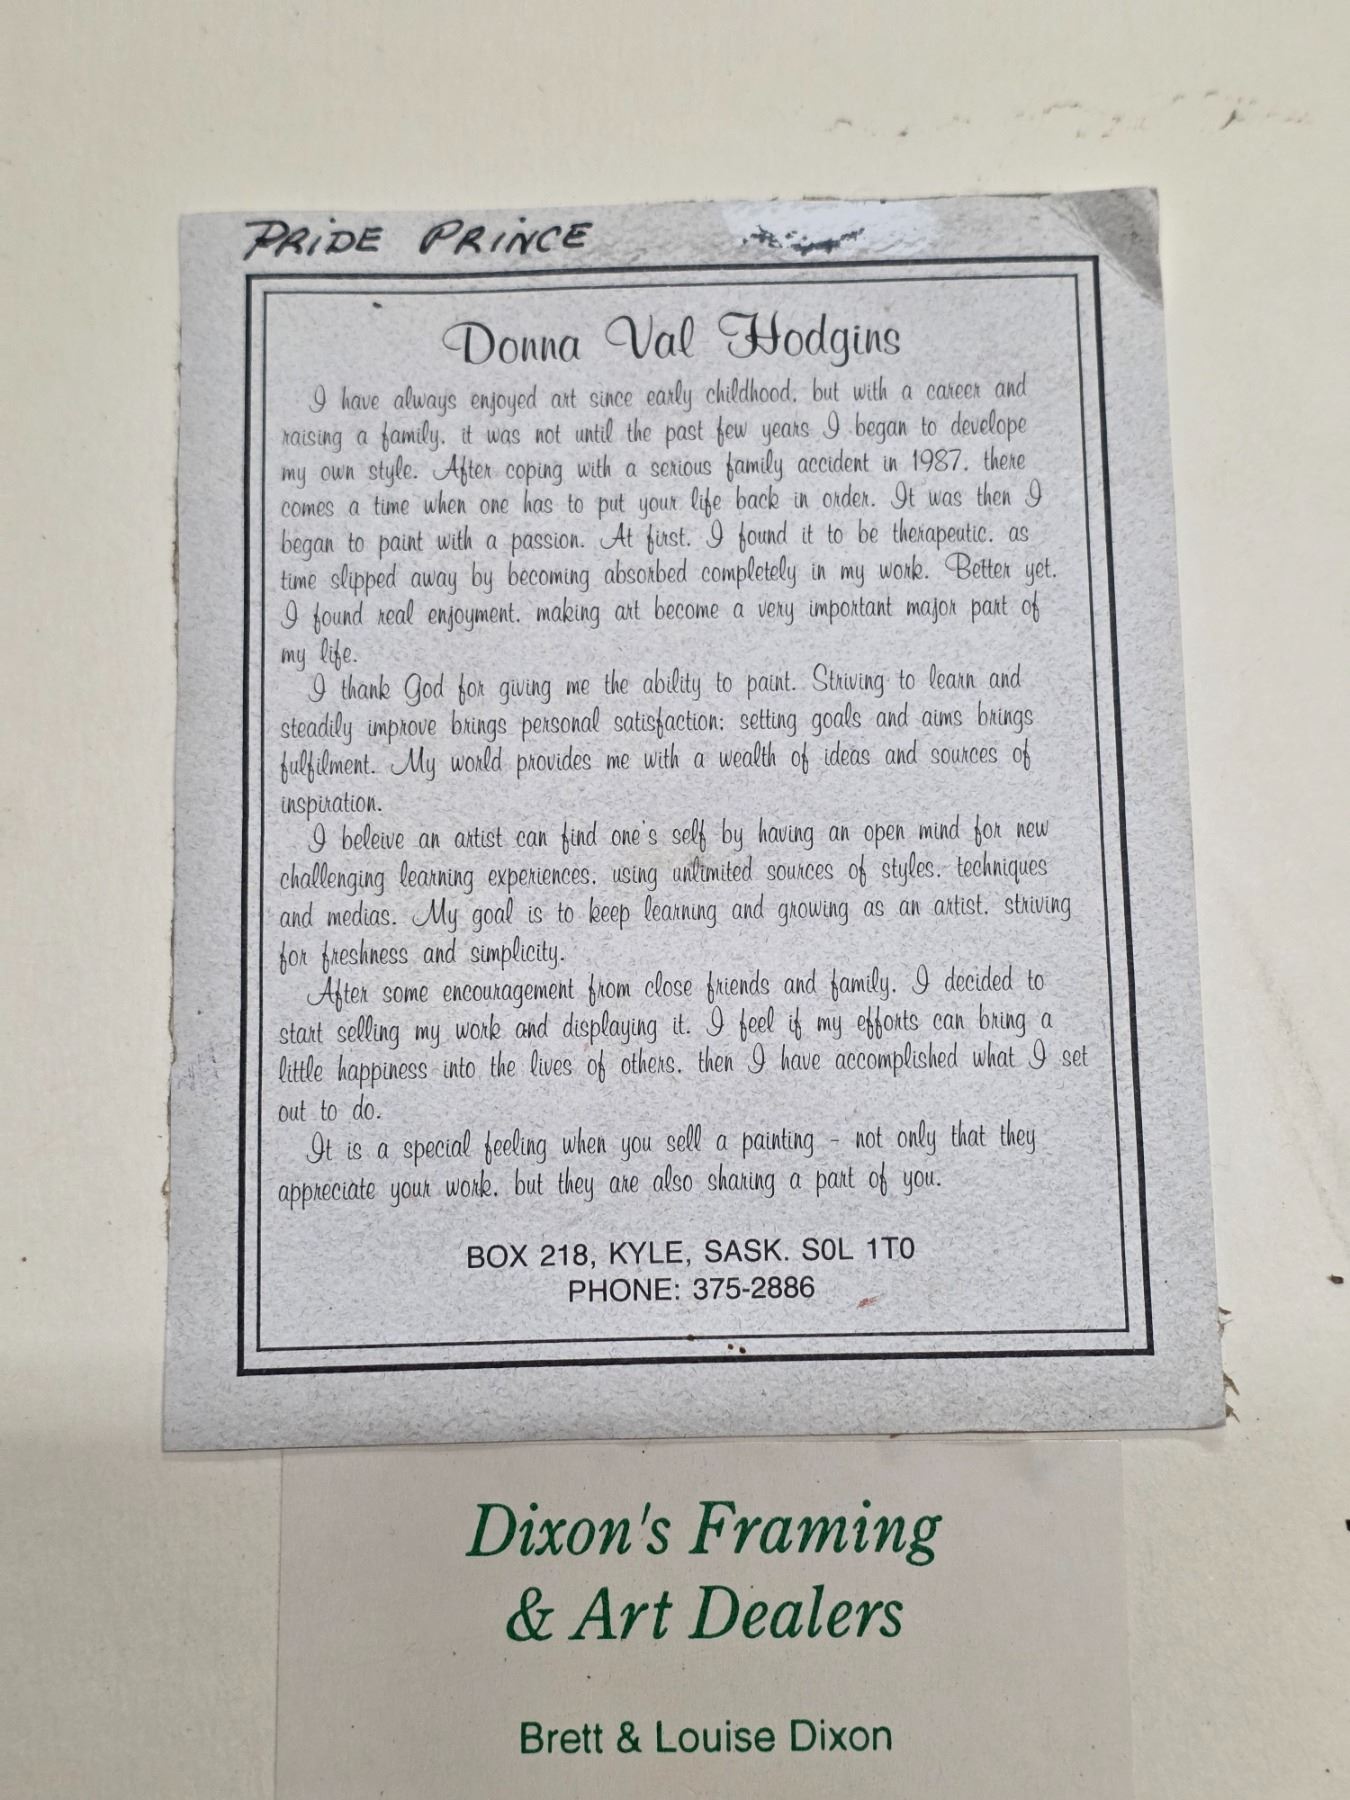 PRIDE PRINCE
Donna Val Hodgins
I have always enjoyed art since early childhood, but with a career and
raising a family, it was not until the past few years I began to develope
my own style. After coping with a serious family accident in 1987, there
comes a time when one has to put your life back in order. It was then I
began to paint with a passion. At first, I found it to be therapeutic, as
time slipped away by becoming absorbed completely in my work. Better yet,
I found real enjoyment, making art become a very important major part of
my life.
I thank God for giving me the ability to paint. Striving to learn and
steadily improve brings personal satisfaction; setting goals and aims brings
fulfilment. My world provides me with a wealth of ideas and sources of
inspiration.
I beleive an artist can find one's self by having an open mind for new
challenging learning experiences, using unlimited sources of styles, techniques
and medias. My goal is to keep learning and growing as an artist, striving
for freshness and simplicity.
After some encouragement from close friends and family, I decided to
start selling my work and displaying it. I feel if my efforts can bring a
little happiness into the lives of others, then I have accomplished what I set
out to do.
It is a special feeling when you sell a painting - not only that they
appreciate your work, but they are also sharing a part of you.
BOX 218, KYLE, SASK. S0L 1T0
PHONE: 375-2886
Dixon's Framing
& Art Dealers
Brett & Louise Dixon